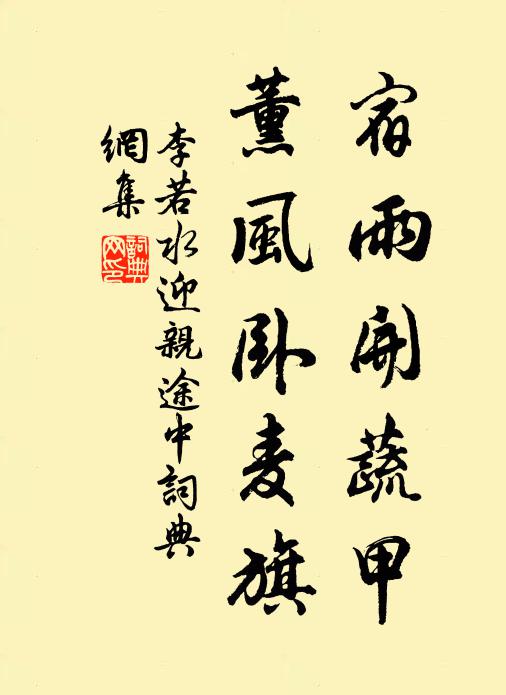 宿雨開蔬甲
薰風卧麦旗
李若水迎親途中詞典
網集
詞典网印